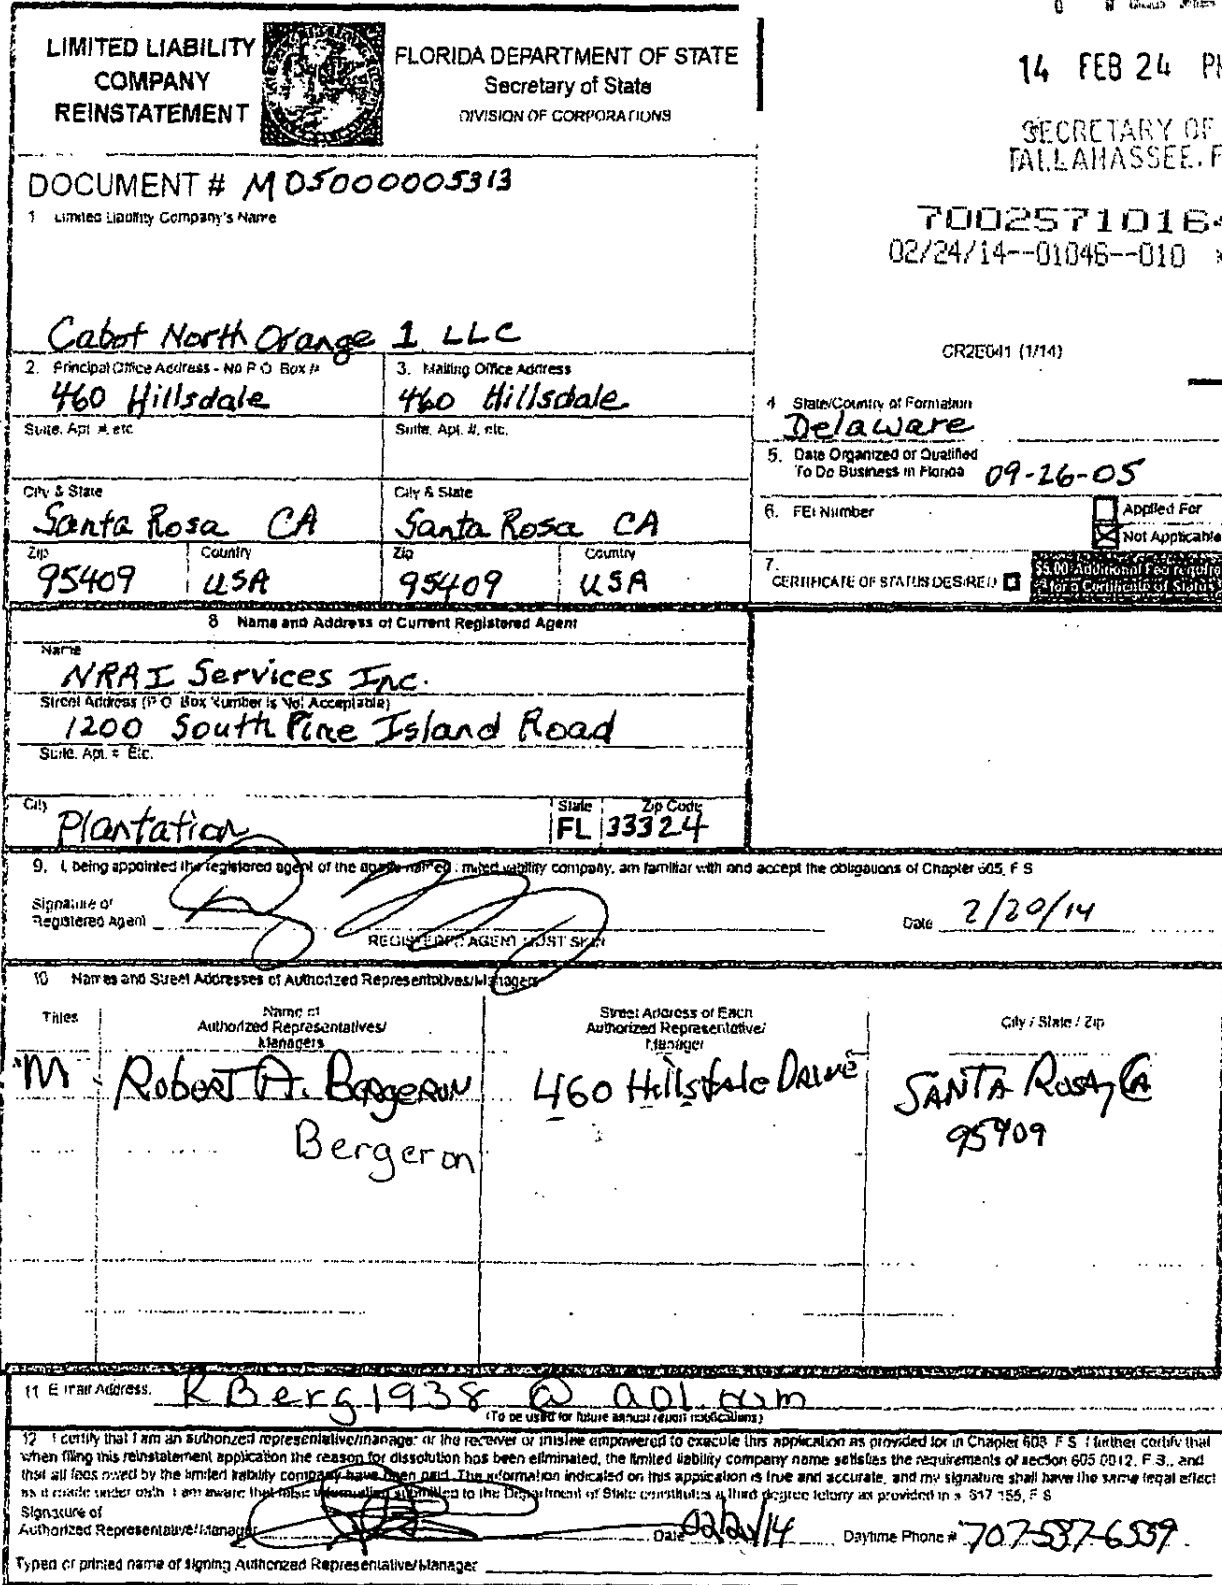 LIMITED LIABILITY
COMPANY
REINSTATEMENT
FLORIDA DEPARTMENT OF STATE
Secretary of State
DIVISION OF CORPORATIONS
14 FEB 24
SECRETARY OF
TALLAHASSEE, F
DOCUMENT # M05000005313
70025710164
02/24/14--01046--010
1 Limited Liability Company's Name
Cabot North Orange 1 LLC
CR2E041 (1/14)
2. Principal Office Address - No P O Box #
3. Mailing Office Address
460 Hillsdale
460 Hillsdale
4 State/Country of Formation
Delaware
Suite, Apt #, etc
Suite, Apt. #, etc.
5. Date Organized or Qualified
To Do Business in Florida 09-26-05
City & State
City & State
Santa Rosa CA
Santa Rosa CA
6. FEI Number
Applied For
Not Applicable
Zip
Country
Zip
Country
95409
USA
95409
USA
7.
CERTIFICATE OF STATUS DESIRED
$5.00 Additional Fee required
for a Certificate of Status
8 Name and Address of Current Registered Agent
Name
NRAI Services Inc.
Street Address (P O Box Number is Not Acceptable)
1200 South Pine Island Road
Suite, Apt. # Etc.
City
State
Zip Code
Plantation
FL
33324
9. I, being appointed the registered agent of the above named limited liability company, am familiar with and accept the obligations of Chapter 605, F S
Signature of
Registered Agent
Date 2/20/14
REGISTERED AGENT MUST SIGN
10 Names and Street Addresses of Authorized Representatives/Managers
Titles
Name of
Authorized Representatives/
Managers
Street Address of Each
Authorized Representative/
Manager
City / State / Zip
M
Robert A. Bergeron
460 Hillsdale Drive
Santa Rosa, CA
95409
Bergeron
11 E mail Address.
RBerg1938@aol.com
(To be used for future annual report notifications)
12 I certify that I am an authorized representative/manager or the receiver or trustee empowered to execute this application as provided for in Chapter 605 F S I further certify that
when filing this reinstatement application the reason for dissolution has been eliminated, the limited liability company name satisfies the requirements of section 605 0012, F S., and
that all fees owed by the limited liability company have been paid. The information indicated on this application is true and accurate, and my signature shall have the same legal effect
as if made under oath I am aware that false information submitted to the Department of State constitutes a third degree felony as provided in s 817 155, F S
Signature of
Authorized Representative/Manager
Date
Daytime Phone #
Typed or printed name of signing Authorized Representative/Manager